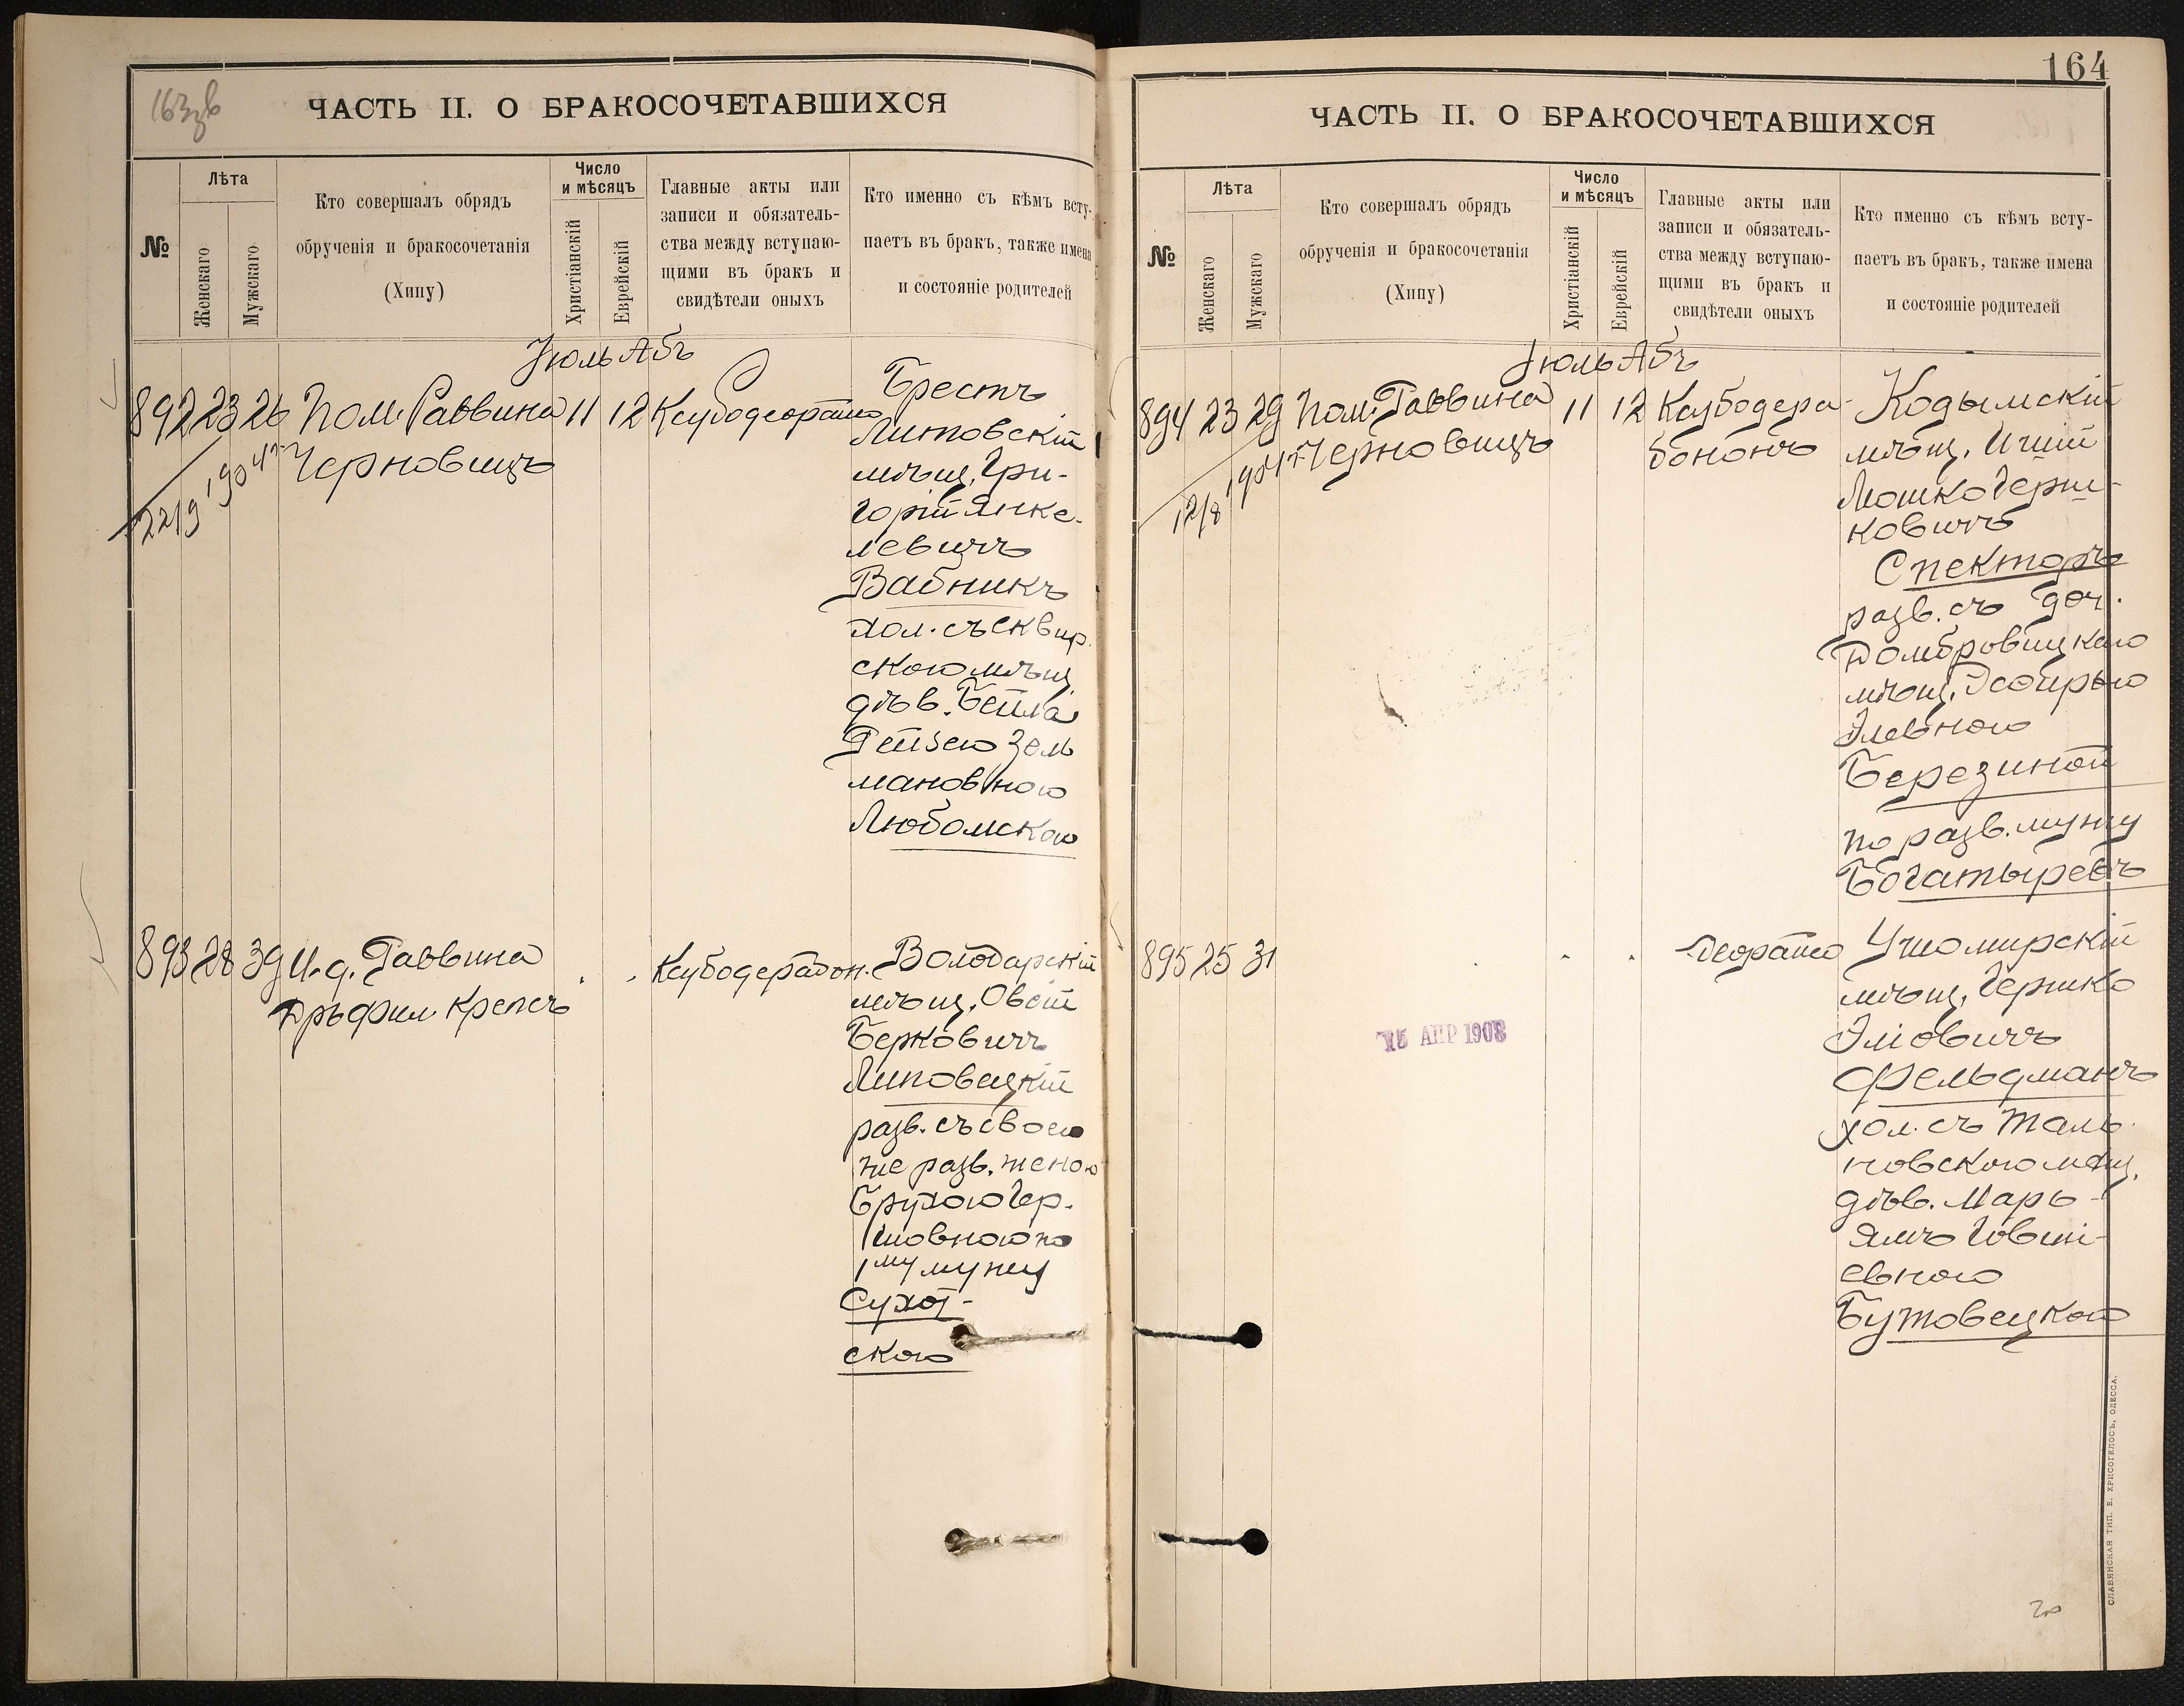 163 об
ЧАСТЬ II. О БРАКОСОЧЕТАВШИХСЯ
№
Лѣта
Женскаго
Мужскаго
Кто совершалъ обрядъ
обрученія и бракосочетанія
(Хипу)
Число
и мѣсяцъ
Христіанскій
Еврейскій
Главные акты или
записи и обязатель-
ства между вступаю-
щими въ бракъ и
свидѣтели оныхъ
Кто именно съ кѣмъ всту-
паетъ въ бракъ, также имена
и состояніе родителей
Іюль Абъ
892 23 26 Пом. Раввина 11 12
Черновицъ
22/9 1904 г.
Брестъ
Литовскій
мѣщ. Гри-
горій Янке-
левичъ
Вабникъ
хол. съ Сквир.
скою мѣщ.
дѣв. Бейла
Рейзею Зель
мановною
Любомскою
893 28 39 И. д. Раввина
Др Фил. Крепсъ
Ксубодерабон.
Володарскій
мѣщ. Овсій
Берковичъ
Липовецкій
разв. съ своею
же разв. женою
Брухою Гер-
шовною по
1му мужу
Сухот-
скою
164
ЧАСТЬ II. О БРАКОСОЧЕТАВШИХСЯ
№
Лѣта
Женскаго
Мужскаго
Кто совершалъ обрядъ
обрученія и бракосочетанія
(Хипу)
Число
и мѣсяцъ
Христіанскій
Еврейскій
Главные акты или
записи и обязатель-
ства между вступаю-
щими въ бракъ и
свидѣтели оныхъ
Кто именно съ кѣмъ всту-
паетъ въ бракъ, также имена
и состояніе родителей
Іюль Абъ
894 23 29 Пом. Раввина 11 12 Ксубодера-
Черновицъ
бононъ
12/8 1904 г.
Кодымскій
мѣщ. Ицій
Мошко Герш-
ковичъ
Спекторъ
разв. съ доч.
Домбровицкаго
мѣщ. Эсфирью
Элевною
Березиной
по разв. мужу
Богатыревъ
895 25 31
Деорайсо
15 АПР 1908
Ушомирскій
мѣщ. Гершко
Эліовичъ
Фельдманъ
хол. съ Таль-
новскою мѣщ.
дѣв. Марь-
ямъ Говши-
евною
Бутовецкою
СЛАВЯНСКАЯ ТИП. Е. ХРИСОГЕЛОСЪ, ОДЕССА.